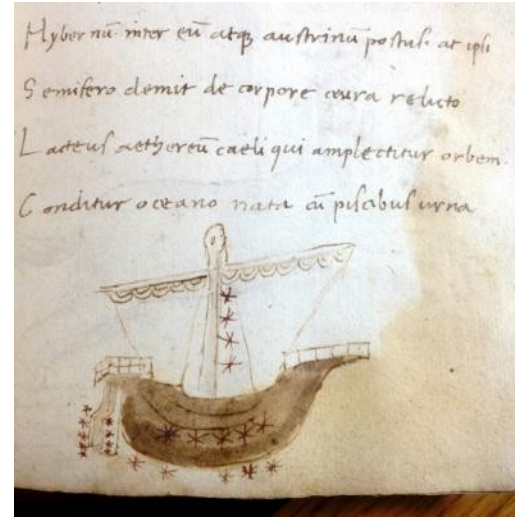 Hybernū inter eū atq; austrinū postul. at ipsi
Semifero demit de corpore crura relicto
Lacteus aethereū caeli qui amplectitur orbem.
Conditur oceano nata cū piscibus urna